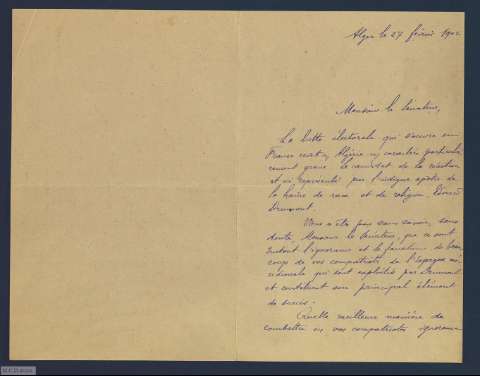 Alger le 27 février 1902
Monsieur le Sénateur,
La lutte électorale qui s'ouvre en
France revêt en Algérie un caractère particuliè-
rement grave. Le candidat de la réaction
est ici représenté par l'indigne apôtre de
la haine de race et de religion, Edouard
Drumont.
Vous n'êtes pas sans savoir, sans
doute, Monsieur le Sénateur, que ce sont
surtout l'ignorance et le fanatisme de beau-
coup de vos compatriotes de l'Espagne mé-
ridionale qui sont exploités par Drumont
et constituent son principal élément
de succès.
Quelle meilleure manière de
combattre ici vos compatriotes ignorants